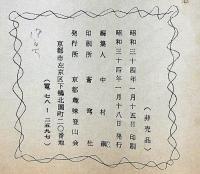 (非売品)
昭和三十四年一月十五日印刷
昭和三十四年一月十八日発行
編集人 中村
印刷所
発行所 京都趣味登山会
京都市左京区下鴨北園町二〇番地
(電 七八-二五九七)